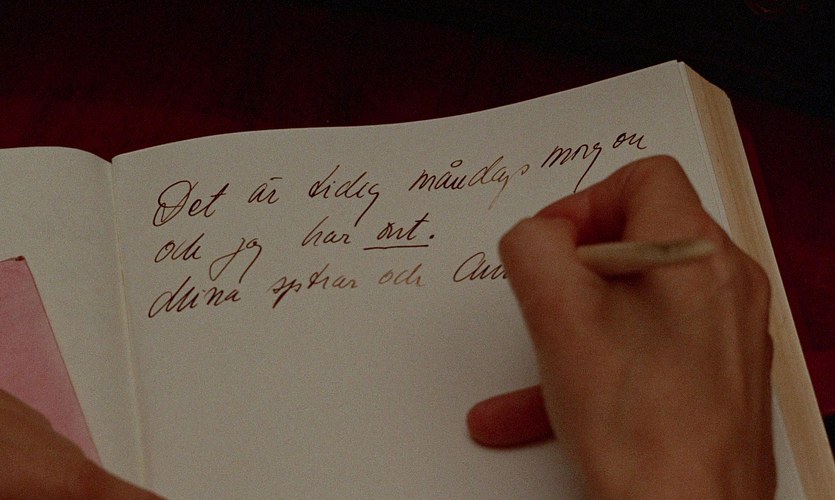 Det är tidig måndags morgon
och jag har ont.
Mina systrar och Ann